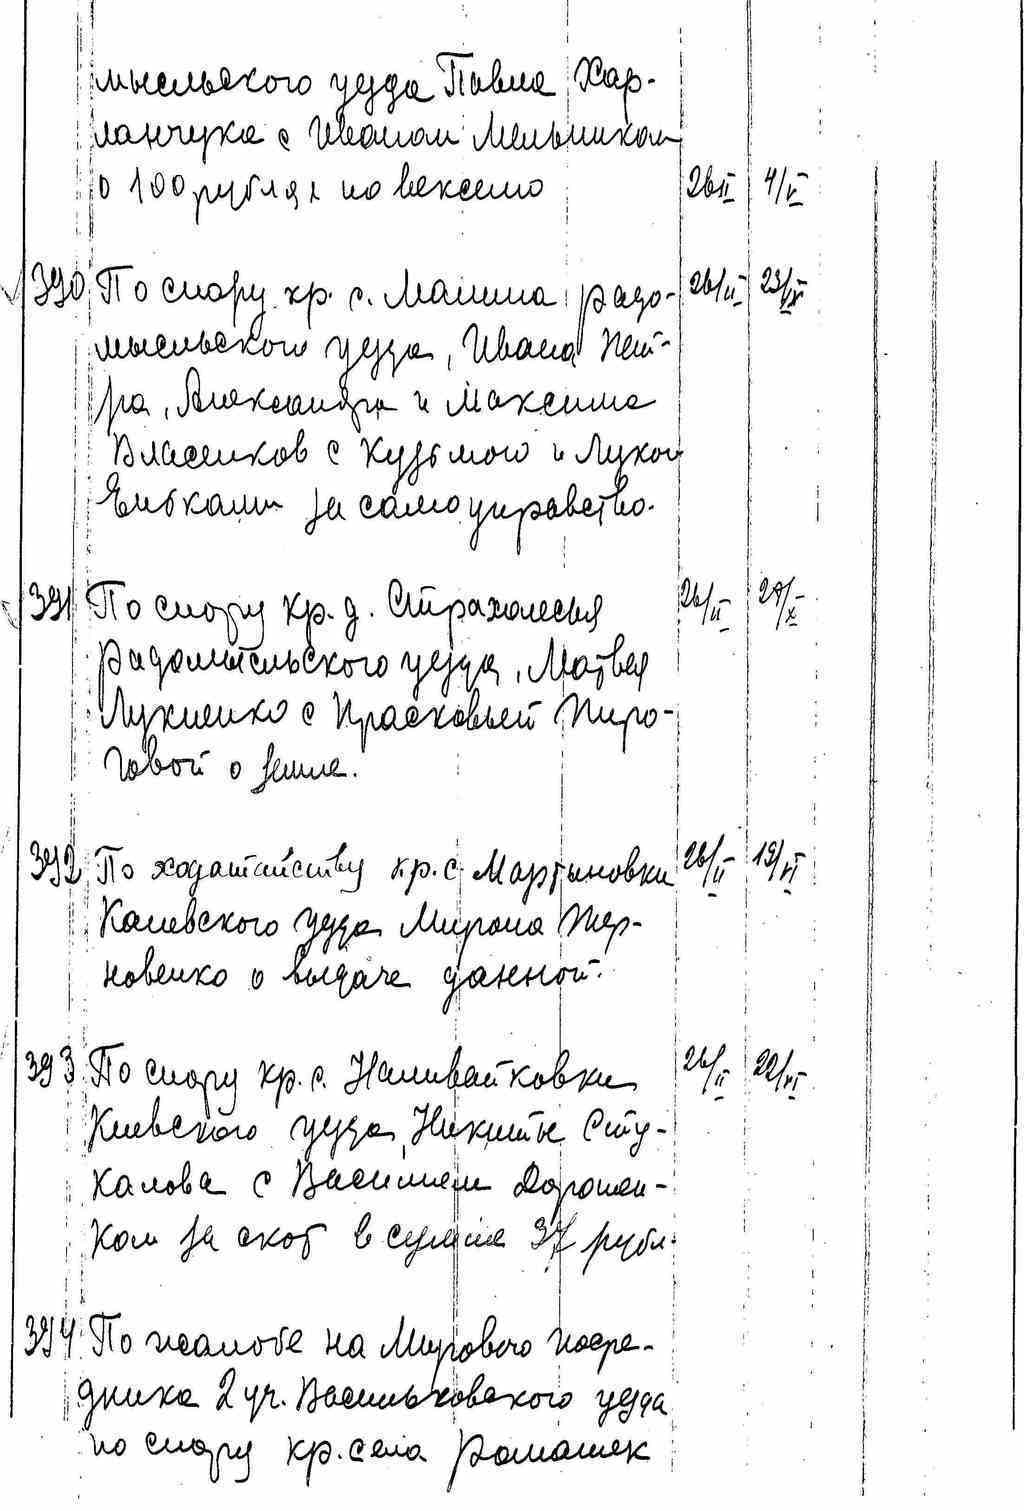 мысльского уезда Павла Хар-
ланчука с Иваном Мельником
о 100 рублях по векселю 26/II 4/V
390 По спору кр. с. Малина радо- 26/II 23/IX
мысльского уезда, Ивана, Пет-
ра, Александра и Максима
Власенков с Кузьмою и Лукой
за самоуправство.
391 По спору кр. д. Страхолесья 26/II 27/X
Радомысльского уезда, Матвея
Лукиенко с Прасковьей Пиро-
говой о земле.
392 По ходатайству кр. с. Мартыновки 26/II 19/VI
Каневского уезда Мирона Чер-
новенко о выдаче данной.
393 По спору кр. с. Наливайковки 26/II 22/VI
Киевского уезда, Никиты Сту-
калова с Василием Дорошен-
ком за скот в сумме 37 рубл.
394 По жалобе на Мирового посре-
дника 2 уч. Васильковского уезда
по спору кр. села Ромашек